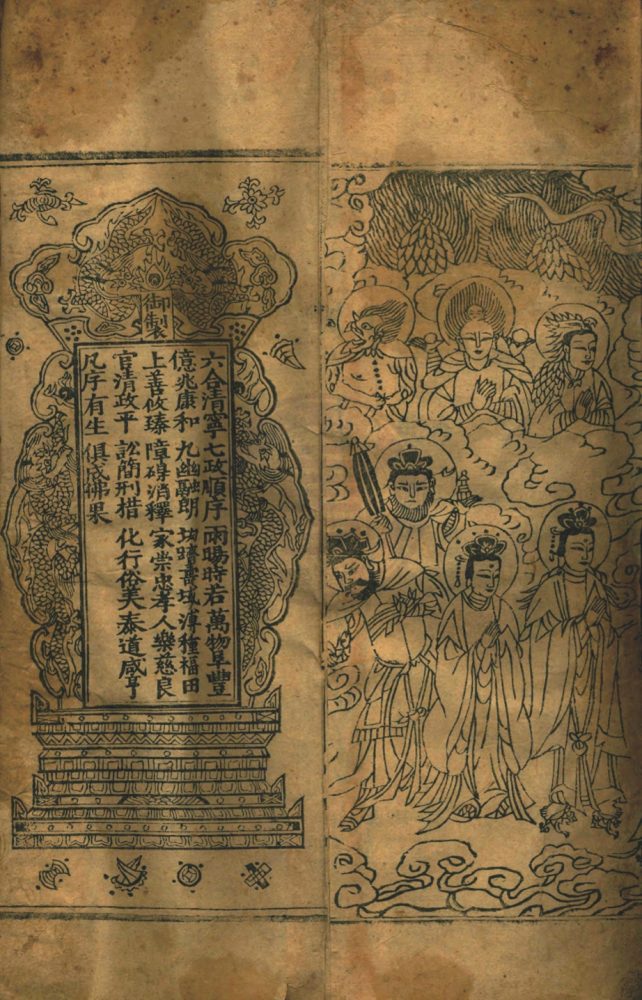 御製
六合清寧七政順序雨暘時若萬物阜豐
億兆康和九幽融朗均躋壽域溥種福田
上善攸臻障碍消釋家崇忠孝人樂慈良
官清政平訟簡刑措化行俗美泰道咸亨
凡厥有生俱成佛果